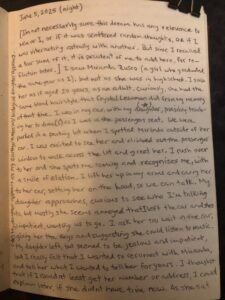 June 5, 2025 (night)
[I'm not necessarily sure this dream has any relevance to
me or I, or if it was scattered random thoughts, or if I
was vibrating astrally with another. But since I recalled
a fair some of it, it is prudent of me to add here, for re-
flection later.] I saw Miranda (a girl who graduated
the same year as I), but not as she was in highschool, I saw
her as if aged 20 years, as an adult. Curiously, she had the
same blond hairstyle that Crystal had from my memory
of that time. I was in my car, with my daughter, possibly teach-
ing her to drive as I was in the passengers seat. We were
parked in a parking lot when I spotted Miranda outside of her
car. I was excited to see her and climbed out the passenger
window to walk across the lot and greet her. I rush over
to her and she spots me coming and recognizes me, with
a smile of elation. I lift her up in my arms and carry her
to her car, setting her on the hood, so we can talk. My
daughter approaches, curious to see who I'm talking
to, but mostly she seems annoyed that I left the car and she's
impatient, wanting us to go. I ask her to wait in the car,
giving her the keys and suggesting she could listen to music.
My daughter left, but seemed to be jealous and impatient,
but I really felt that I wanted to reconnect with Miranda,
and tell her what I wanted to tell her for years. I thought
that if I could at least get her number or address, I could
explain later, if she didn't have time now. As she sat